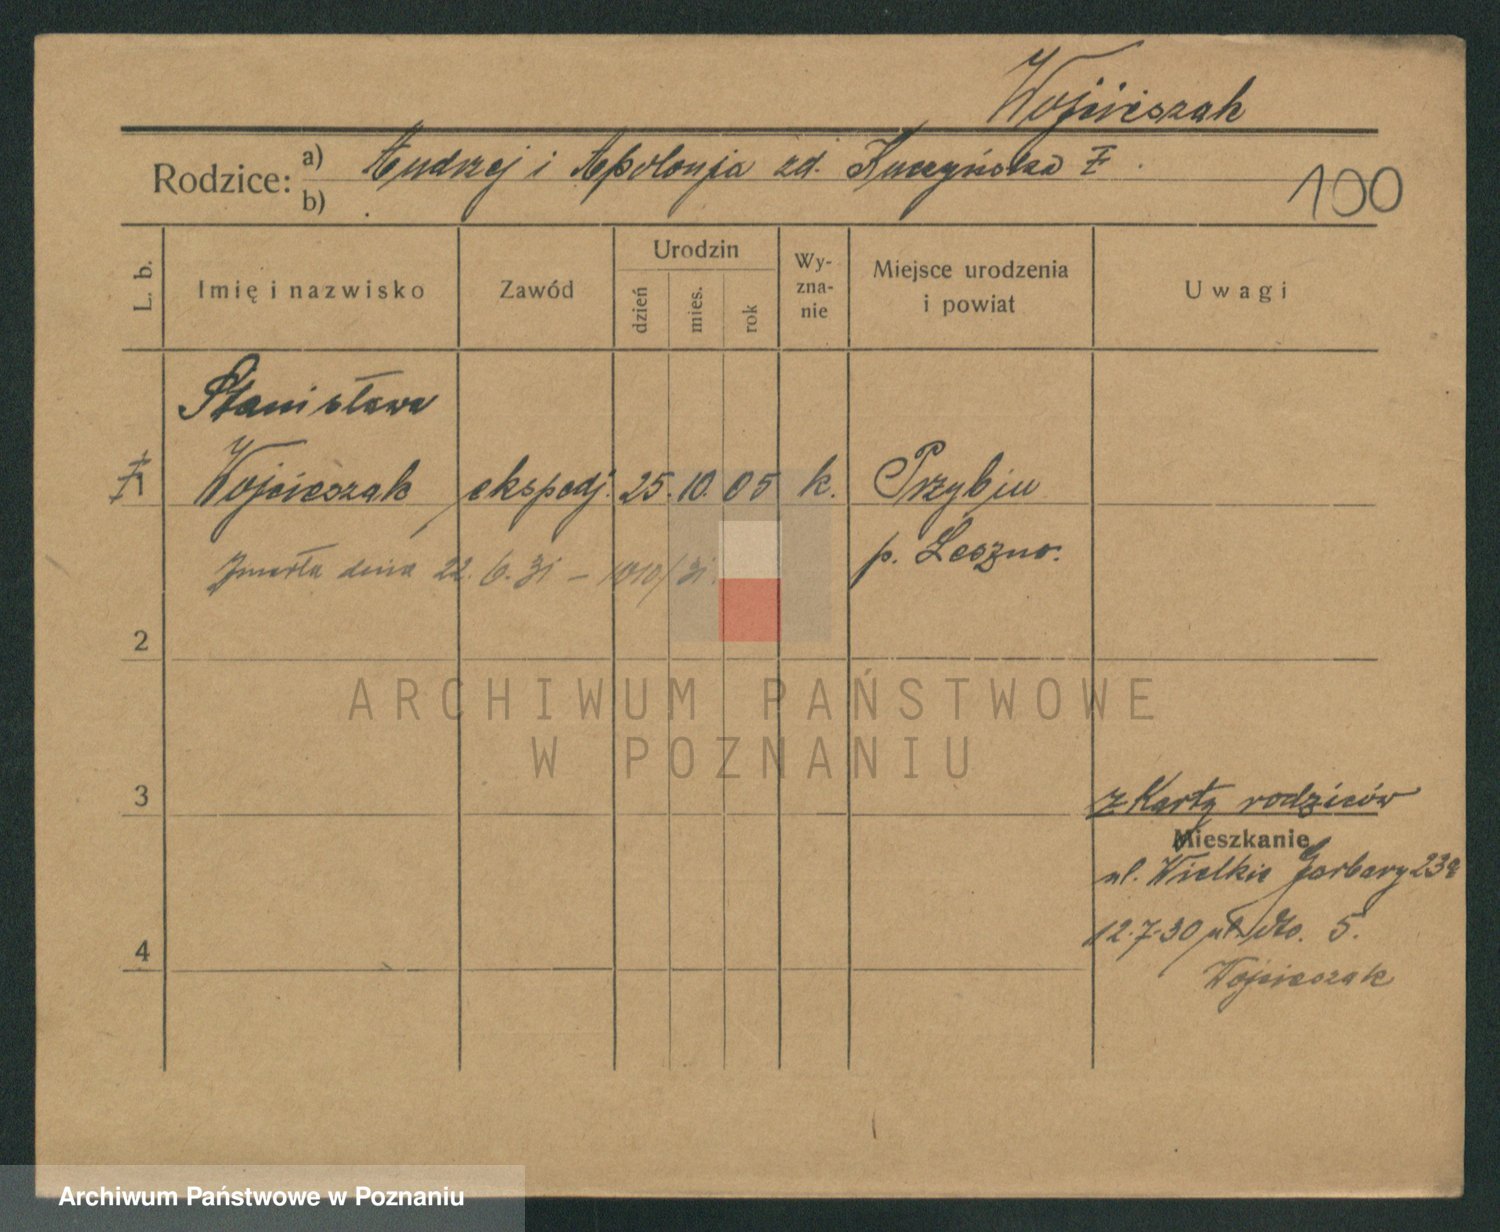 Wojcieszak
Rodzice: a) Andrzej i Apolonja zd. Kuczyńska
b)
100
L. b. Imię i nazwisko Zawód Urodzin dzień mies. rok Wyznanie Miejsce urodzenia i powiat Uwagi
Stanisława
1 Wojcieszak ekspedj. 25. 10. 05 k. Przybiń
p. Leszno.
Zmarła dnia 22. 6. 31 – 1010/31.
2
ARCHIWUM PAŃSTWOWE
W POZNANIU
3
z Karty rodziców
Mieszkanie
ul. Wielkie Garbary 23a
12.7.30 ul. dto. 5.
4
Wojcieszak
Archiwum Państwowe w Poznaniu